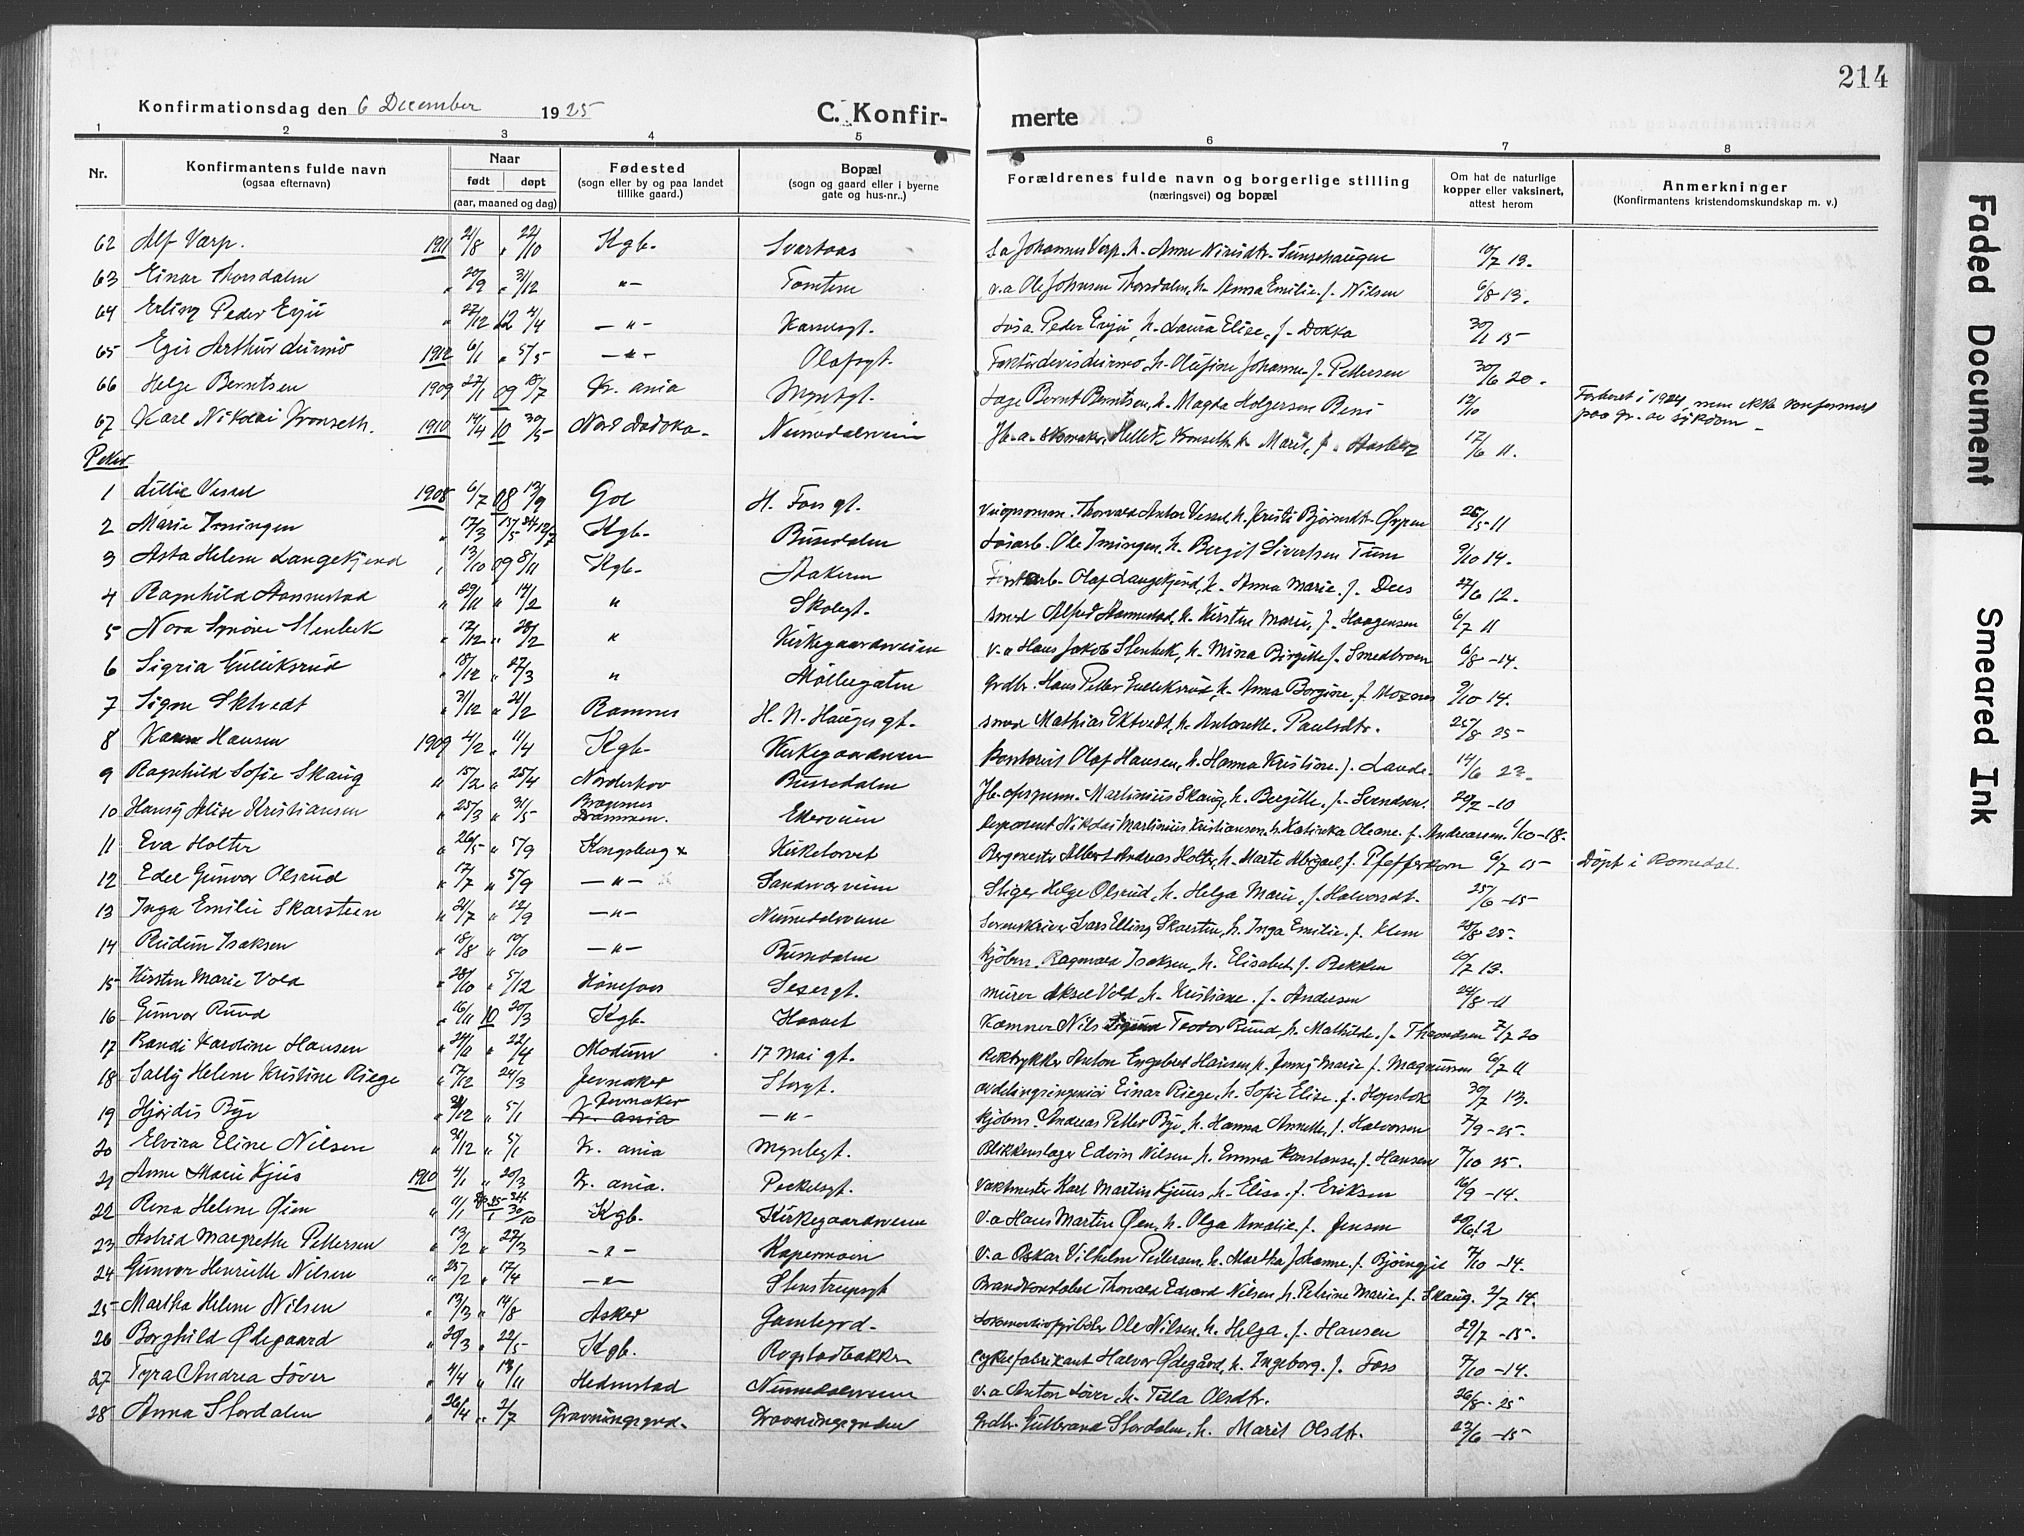 214
Konfirmationsdag den 6 December 1925 C. Konfirmerte
1 2 3 4 5 6 7 8
Nr. Konfirmantens fulde navn (ogsaa efternavn) Naar født døpt (aar, maaned og dag) Fødested (sogn eller by og paa landet tillike gaard.) Bopæl (sogn og gaard eller i byerne gate og hus-nr.) Forældrenes fulde navn og borgerlige stilling (næringsvei) og bopæl Om hat de naturlige kopper eller vaksinert, attest herom Anmerkninger (Konfirmantens kristendomskundskap m. v.)
62 Alf Værp. 1911 21/8 " 22/10 Kgb. Svartaas Johannes Verp. h. Anne 10/7 13.
63 Einar Thorsdalen " 20/9 " 31/12 "- Tomtene v.a Ole Johnsen Thorsdalen, h. Anna Emilie f. Nilsen 6/8 13.
64 Erling Peder Evju " 27/12 12 4/4 -"- Karlsgt. Peder Evju, h. Laura Elise, f. Dokka 30/11 15
65 Egil Arthur 1912 6/1 " 5/5 -"- Olafsgt. h. Olefine Johanne f. Pettersen 30/6 20.
66 Helge Berntsen 1909 27/1 09 18/7 Kr. ania Myntgt. Bernt Berntsen, h. Magda Holgersen 12/10 i 1924, men ikke konfirmert
67 Karl Nikolai Kronseth. 1910 14/4 10 30/5 Numedalsveien Kronseth h. Marit, f. 17/6 11. paa gr. av sykdom -
Piker
1 Lillie Vessel 1908 6/7 08 13/9 Gol H. Foss gt. Thorvald Anton Vessel, h. Kristi Bjørnsdtr. 26/5 11
2 Marie " 17/3 Kgb. Bussedalen Ole h. Bergit Sivertsen 9/10 14.
3 Asta Helene Langekjend " 13/10 09 8/11 Kgb. Aakeren Olaf Langekjend, h. Anna Marie f. Dees 27/6 12.
4 Ragnhild Hannestad " 29/11 " 14/2 " Skolegt. Smed Alfred Hannestad, h. Kirsten Marie, f. Haagensen 6/7 11
5 Nora Synøve Stenbek " 12/12 " 28/2 " Kirkegaardsveien v.a Hans Jakob Stenbek, h. Mina Birgitte f. Smedbroen 6/8 -14.
6 Sigrid Gulliksrud " 18/12 " 27/3 " Møllergaten Grdbr. Hans Petter Gulliksrud, h. Anna Borgine, f. Moxnes 9/10 14.
7 Signe Ektvedt " 31/12 " 21/2 Ramnes H. N. Hauges gt. Smed Mathias Ektvedt, h. Antonette Paulsdtr. 25/8 25-
8 Karen Hansen 1909 4/2 " 11/4 Kgb. Kirkegaardsveien Kontorist Olaf Hansen, h. Hanna Kristine f. Lande. 19/6 22.
9 Ragnhild Sofie Skaug " 15/2 " 25/4 Norderhov Bussedalen Martinius Skaug, h. Bergitte f. Svendsen. 20/7 -10
10 Hansy Alise Kristiansen " 25/3 " 31/5 Bragernes Drammen. Disponent Nikolai Martinius Kristiansen, h. Katinka Oleane f. Andreassen. 1/10 -18.
11 Eva Holter " 26/5 " 5/9 Kongsberg x Kirketorvet Bergmester Albert Andreas Holter, h. Marte Abigael, f. Pfefferkorn 6/7 15 Døpt i Romedal.
12 Edel Gunvor Olsrud " 17/7 " 5/9 -"- Sandsværveien Stiger Helge Olsrud, h. Helga Marie f. Halvorsdt. 25/6 -15-
13 Inga Emilie Skarsteen " 21/7 " 12/9 -"- Numedalsveien Lars Elling Skarsten, h. Inga Emilie f. Klem 28/8 25-
14 Reidun Isaksen " 18/8 " 10/10 -"- Bussedalen Kjøbm. Ragnvald Isaksen, h. Elisabet, f. Bekken 10/7 13.
15 Kirsten Marie Vold " 28/10 " 5/12 Hønefoss Murer Aksel Vold h. Kristiane f. Andersen 24/8 -11
16 Gunvor Ruud " 16/11 10 20/3 Kgb. Haavet Kæmner Nils Teodor Ruud, h. Mathilde f. 7/7 20
17 Randi Karoline Hansen " 24/11 " 22/4 Modum 17 Mai gt. Boktrykker Anton Engebret Hansen, h. Jenny Marie f. Magnussen 6/7 11
18 Sally Helene Kristine Riege " 17/12 " 24/3 Jevnaker Storgt. Avdelingsingeniør Einar Riege, h. Sofie Elise f. Hopstok 30/7 13.
19 Hjørdis Bye " 24/12 " 5/1 Jevnaker Kr. ania -"- Kjøbm. Andreas Petter Bye, h. Hanna Annette, f. Halvorsen 7/9 -25.
20 Elvira Eline Nilsen " 31/12 " 5/1 Kr. ania Myntgt. Blikkenslager Edvin Nilsen h. Emma Konstanse f. Hansen 7/10 25.
21 Anne Marie Kjus 1910 4/1 " 20/3 Kr. ania. Peckelsgt. Vaktmester Karl Martin Kjuus, h. Elise f. Eriksen 16/9 -14.
22 Rena Helene Øien " 11/1 30/10 Kgb. Kirkegaardsveien v.a Hans Martin Øen, h. Olga Amalie f. Jensen 20/6 12
23 Astrid Margrethe Pettersen " 13/2 " 27/3 -"- Kapermoen v.a Oskar Vilhelm Pettersen, h. Martha Johanne f. 7/10 -14.
24 Gunvor Henriette Nilsen " 25/2 " 17/4 -"- Stenstrupsgt Brandkonstabel Thorvald Edvard Nilsen h. Petrine Marie f. Skaug. 2/7 14.
25 Martha Helene Nilsen " 13/3 " 14/8 Asker Gamlegrd. Ole Nilsen, h. Helga f. Hansen 29/7 -15.
26 Borghild Ødegaard " 20/3 " 22/5 Kgb. Rogstadbakken Cykkelfabrikant Halvor Ødegård, h. Ingeborg f. Foss 7/10 -14.
27 Tyra Andrea Løver " 4/4 " 13/11 Hedenstad Numedalsveien v.a Anton Løver, h. Tilla Olsdtr. 26/8 -25
28 Anna Stordalen " 26/4 " 2/7 Gravningsgrd. Gravningsgrden Grdbr. Gulbrand Stordalen, h. Marit Olsdtr. 23/6 -15
Faded Document
Smeared Ink